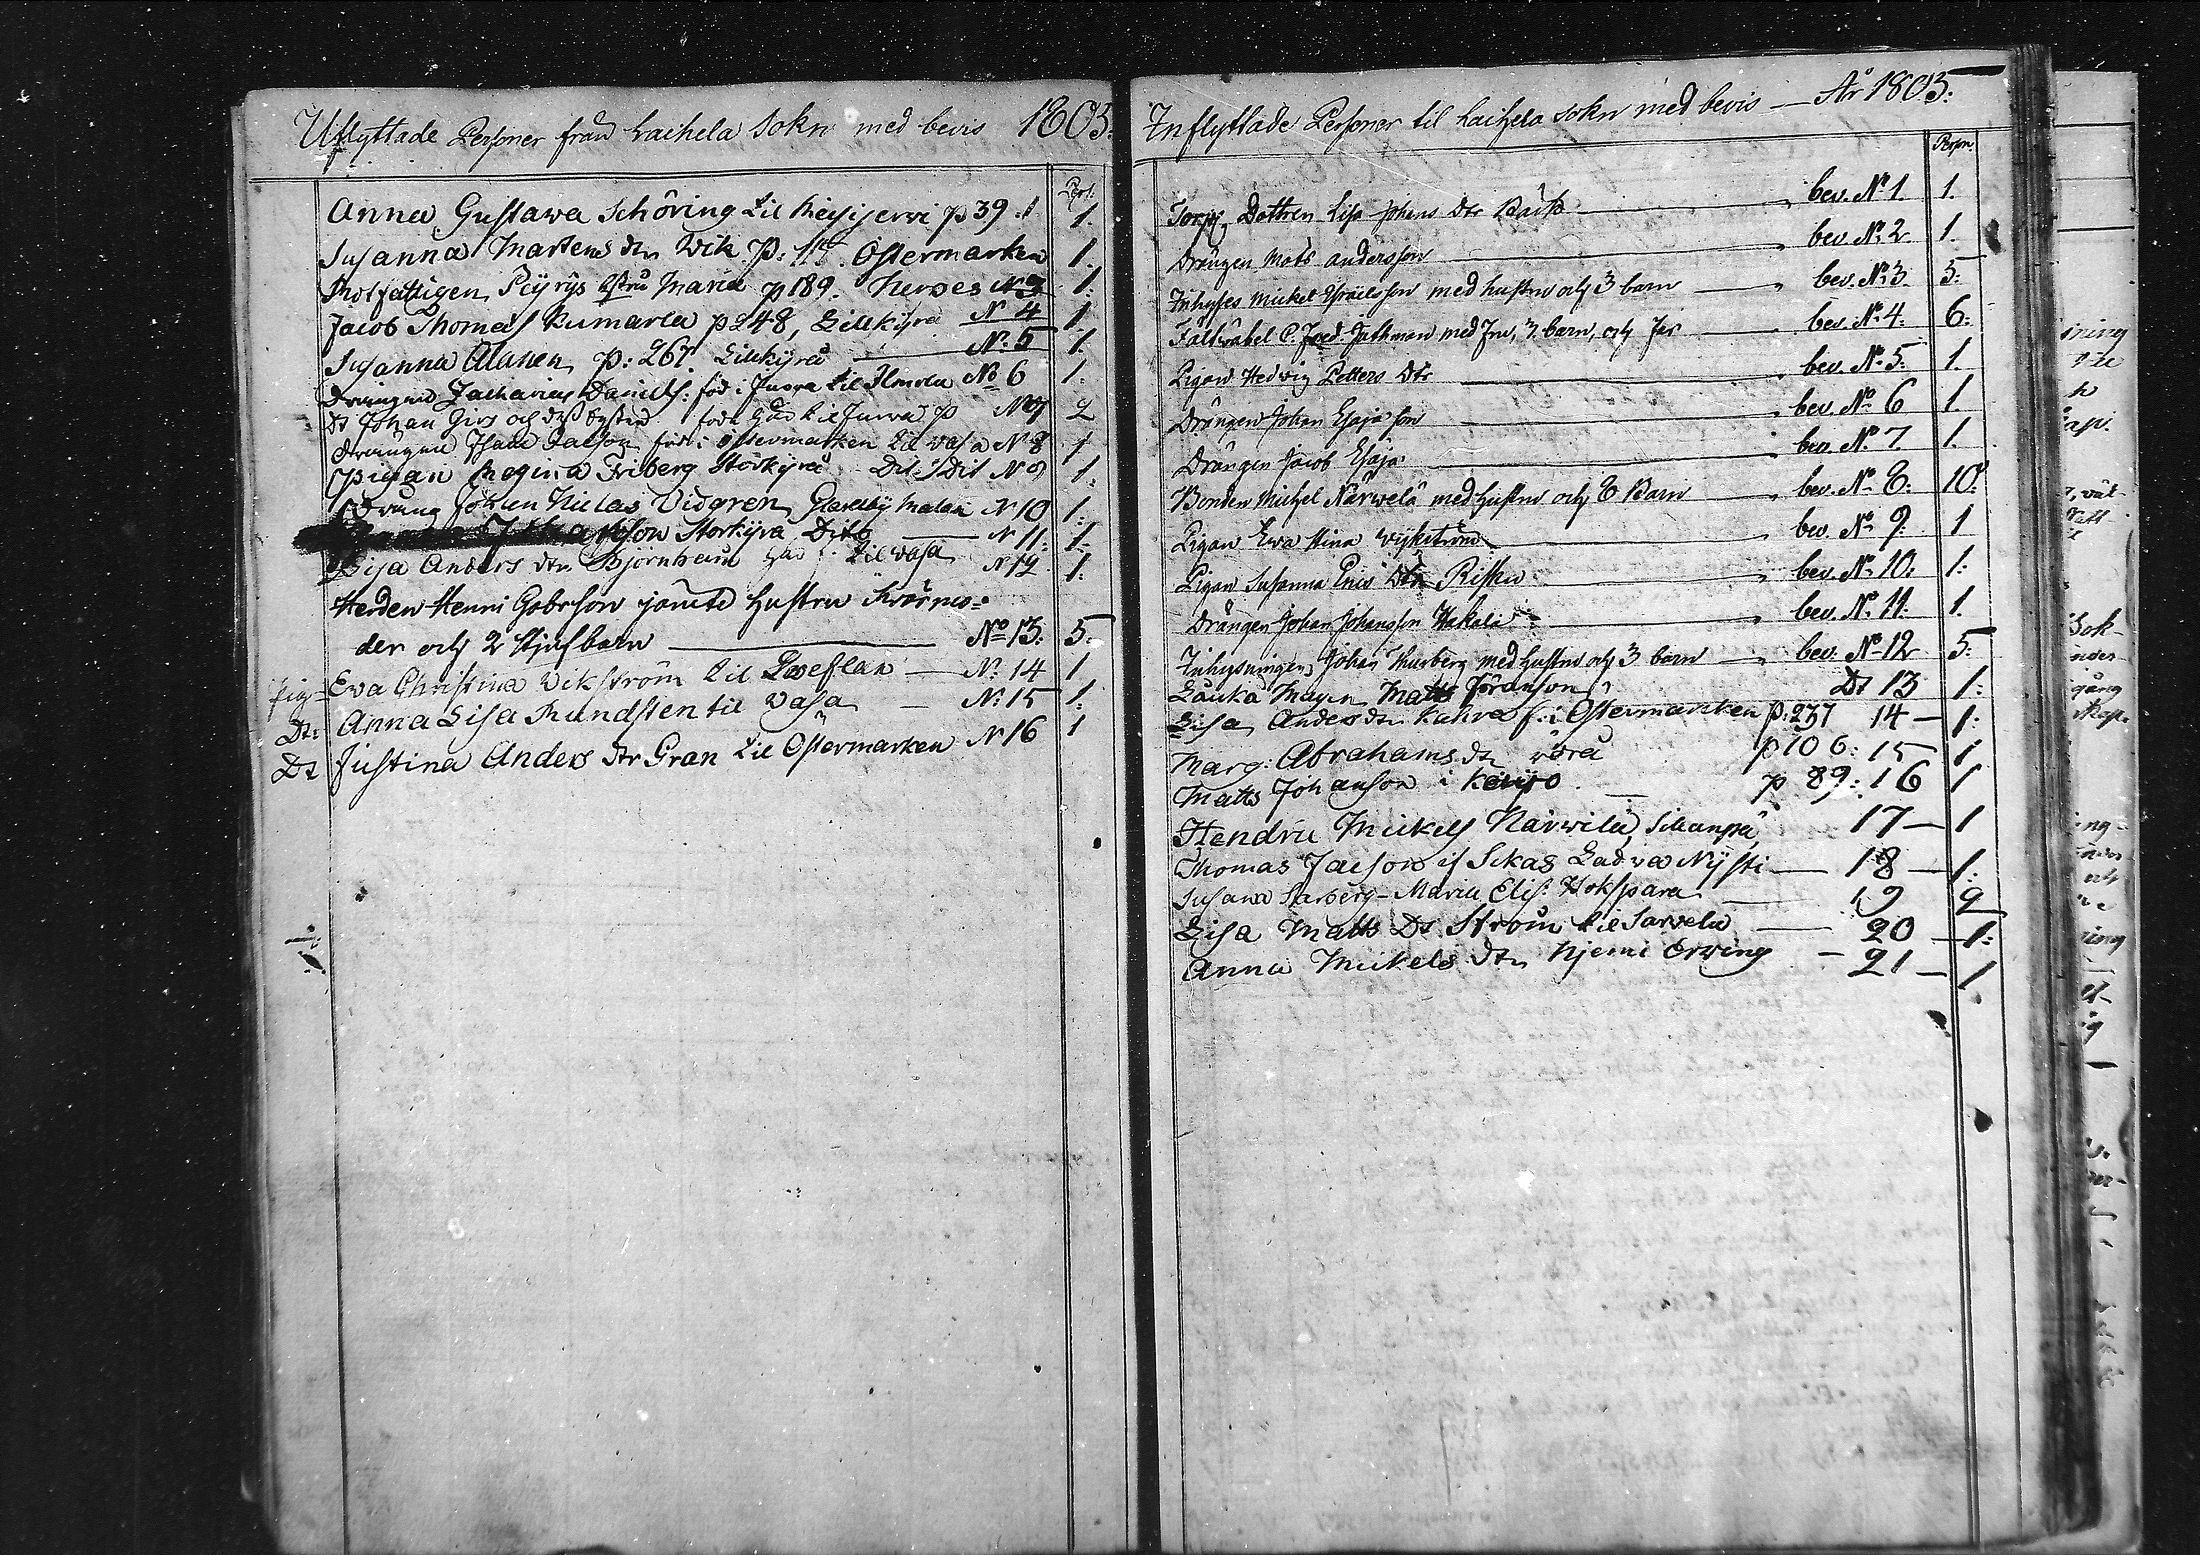 Utflyttade Personer från Laihela Sokn med bevis 1803.
Pers.
Anna Gustawa Schöring til Keyijerwi p 39 .1. 1.
Susanna Martens dr Wik p: 118. Östermarken 1.
Rotfattigen Peyrys hstru Maria p 189. Nerpes N 3 1:
Jacob Thomas Kumarla p 248, Lillkyro N 4 1
Susanna Alanen p: 267. Lillkyro N: 5 1.
Drängen Zacharias Daniels: föd i Jurva til Ilmola No 6 1.
Dt Johan Girs och dess til Jurva p N 7 2
drängen Isaac Jacson född i Östermarken til Vasa N 8 1
pigan Regina Friberg Störkyro Dit N 9 1.
Dräng Johan Niclas Vidgren Malax N 10 1.
son Storkyro Dito N 11: 1.
Lisa Anders dr Björnham til Vasa N 12 1.
Herden Henri Gabrson jämte hustru Svärmo=
der och 2 Stjufbarn No 13: 5.
pig= Eva Christina Vikström til N: 14 1
Dt: Anna Lisa Rundsten til Vasa N: 15 1.
Dt Justina Anders dr Gran til Östermarken N 16 1
Inflyttade Personer til Laihela Sokn med bevis — År 1803:
Person.
Torp. Dottren Lisa Johans Dtr Bäck bev. No 1. 1.
Drängen Mats Andersson bev. No 2 1.
Inhyses Mickel Israelsson med hustru och 3 barn bev. No: 3 5:
Fältwäbel C. Fred. Jathman med Fru, 3 barn, och bev No 4: 6:
Pigan Hedvig Petters Dtr bev. No 5: 1.
Drängen Johan Esajasson bev. No 6 1.
Drängen Jacob Esajas bev No 7. 1.
Bonden Michel Närwelä med hustru och 8 Barn bev. No 8: 10:
Pigan Ewa Stina Wykström bev. No 9: 1
Pigan Susanna Eriks Dtr Risku bev. No 10: 1:
Drängen Johan Johansson Hakala bev. No 11: 1.
Inhysningen Johan Thurberg med hustru och 3 barn bev: No 12 5:
Matts Döransson Dt 13 1:
Lisa Anders dr f: i Östermarken p: 237 14 — 1:
Marg: Abrahams dr Vörå p 106: 15 1
Matts Johanson i p 89: 16 1
Hendric Mickels Närwilä, 17 — 1
Thomas Jacson Nysti — 18 — 1:
Susana — Maria Elis: 19 2
Lisa Matts Dr Ström til Sarvela 20 — 1:
Anna Mickels dr Njemi — 21 — 1